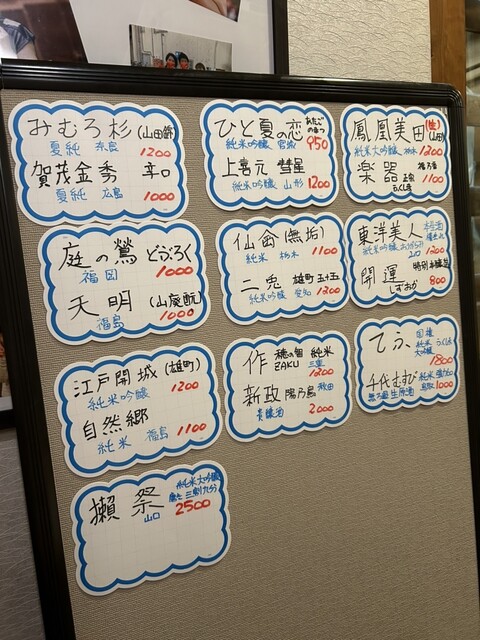 みむろ杉 (山田錦)
夏純 奈良 1200
賀茂金秀 辛口
夏純 広島 1000
ひと夏の恋 あたごのまつ
純米吟醸 宮城 950
上喜元 彗星
純米吟醸 山形 1200
鳳凰美田 (生) (山田)
純米大吟醸 栃木 1300
楽器 正宗
1100
庭の鶯 どぶろく
福岡 1000
天明 (山廃酛)
福島 1000
仙禽 (無垢)
純米 栃木 1100
二兎 雄町 五十五
純米吟醸 愛知 1200
東洋美人
純米吟醸 山口 1200
開運 特別本醸造
しずおか 800
江戸開城 (雄町)
純米吟醸 1200
自然郷
純米 福島 1100
作 穂の智 純米
ZAKU 三重 1200
新政 陽乃鳥 秋田
貴醸酒 2000
てふ 純米大吟醸
1800
千代むすび 純米 強力60
無ろ過生原酒 鳥取 1000
獺祭 純米大吟醸
磨き三割九分
山口 2500